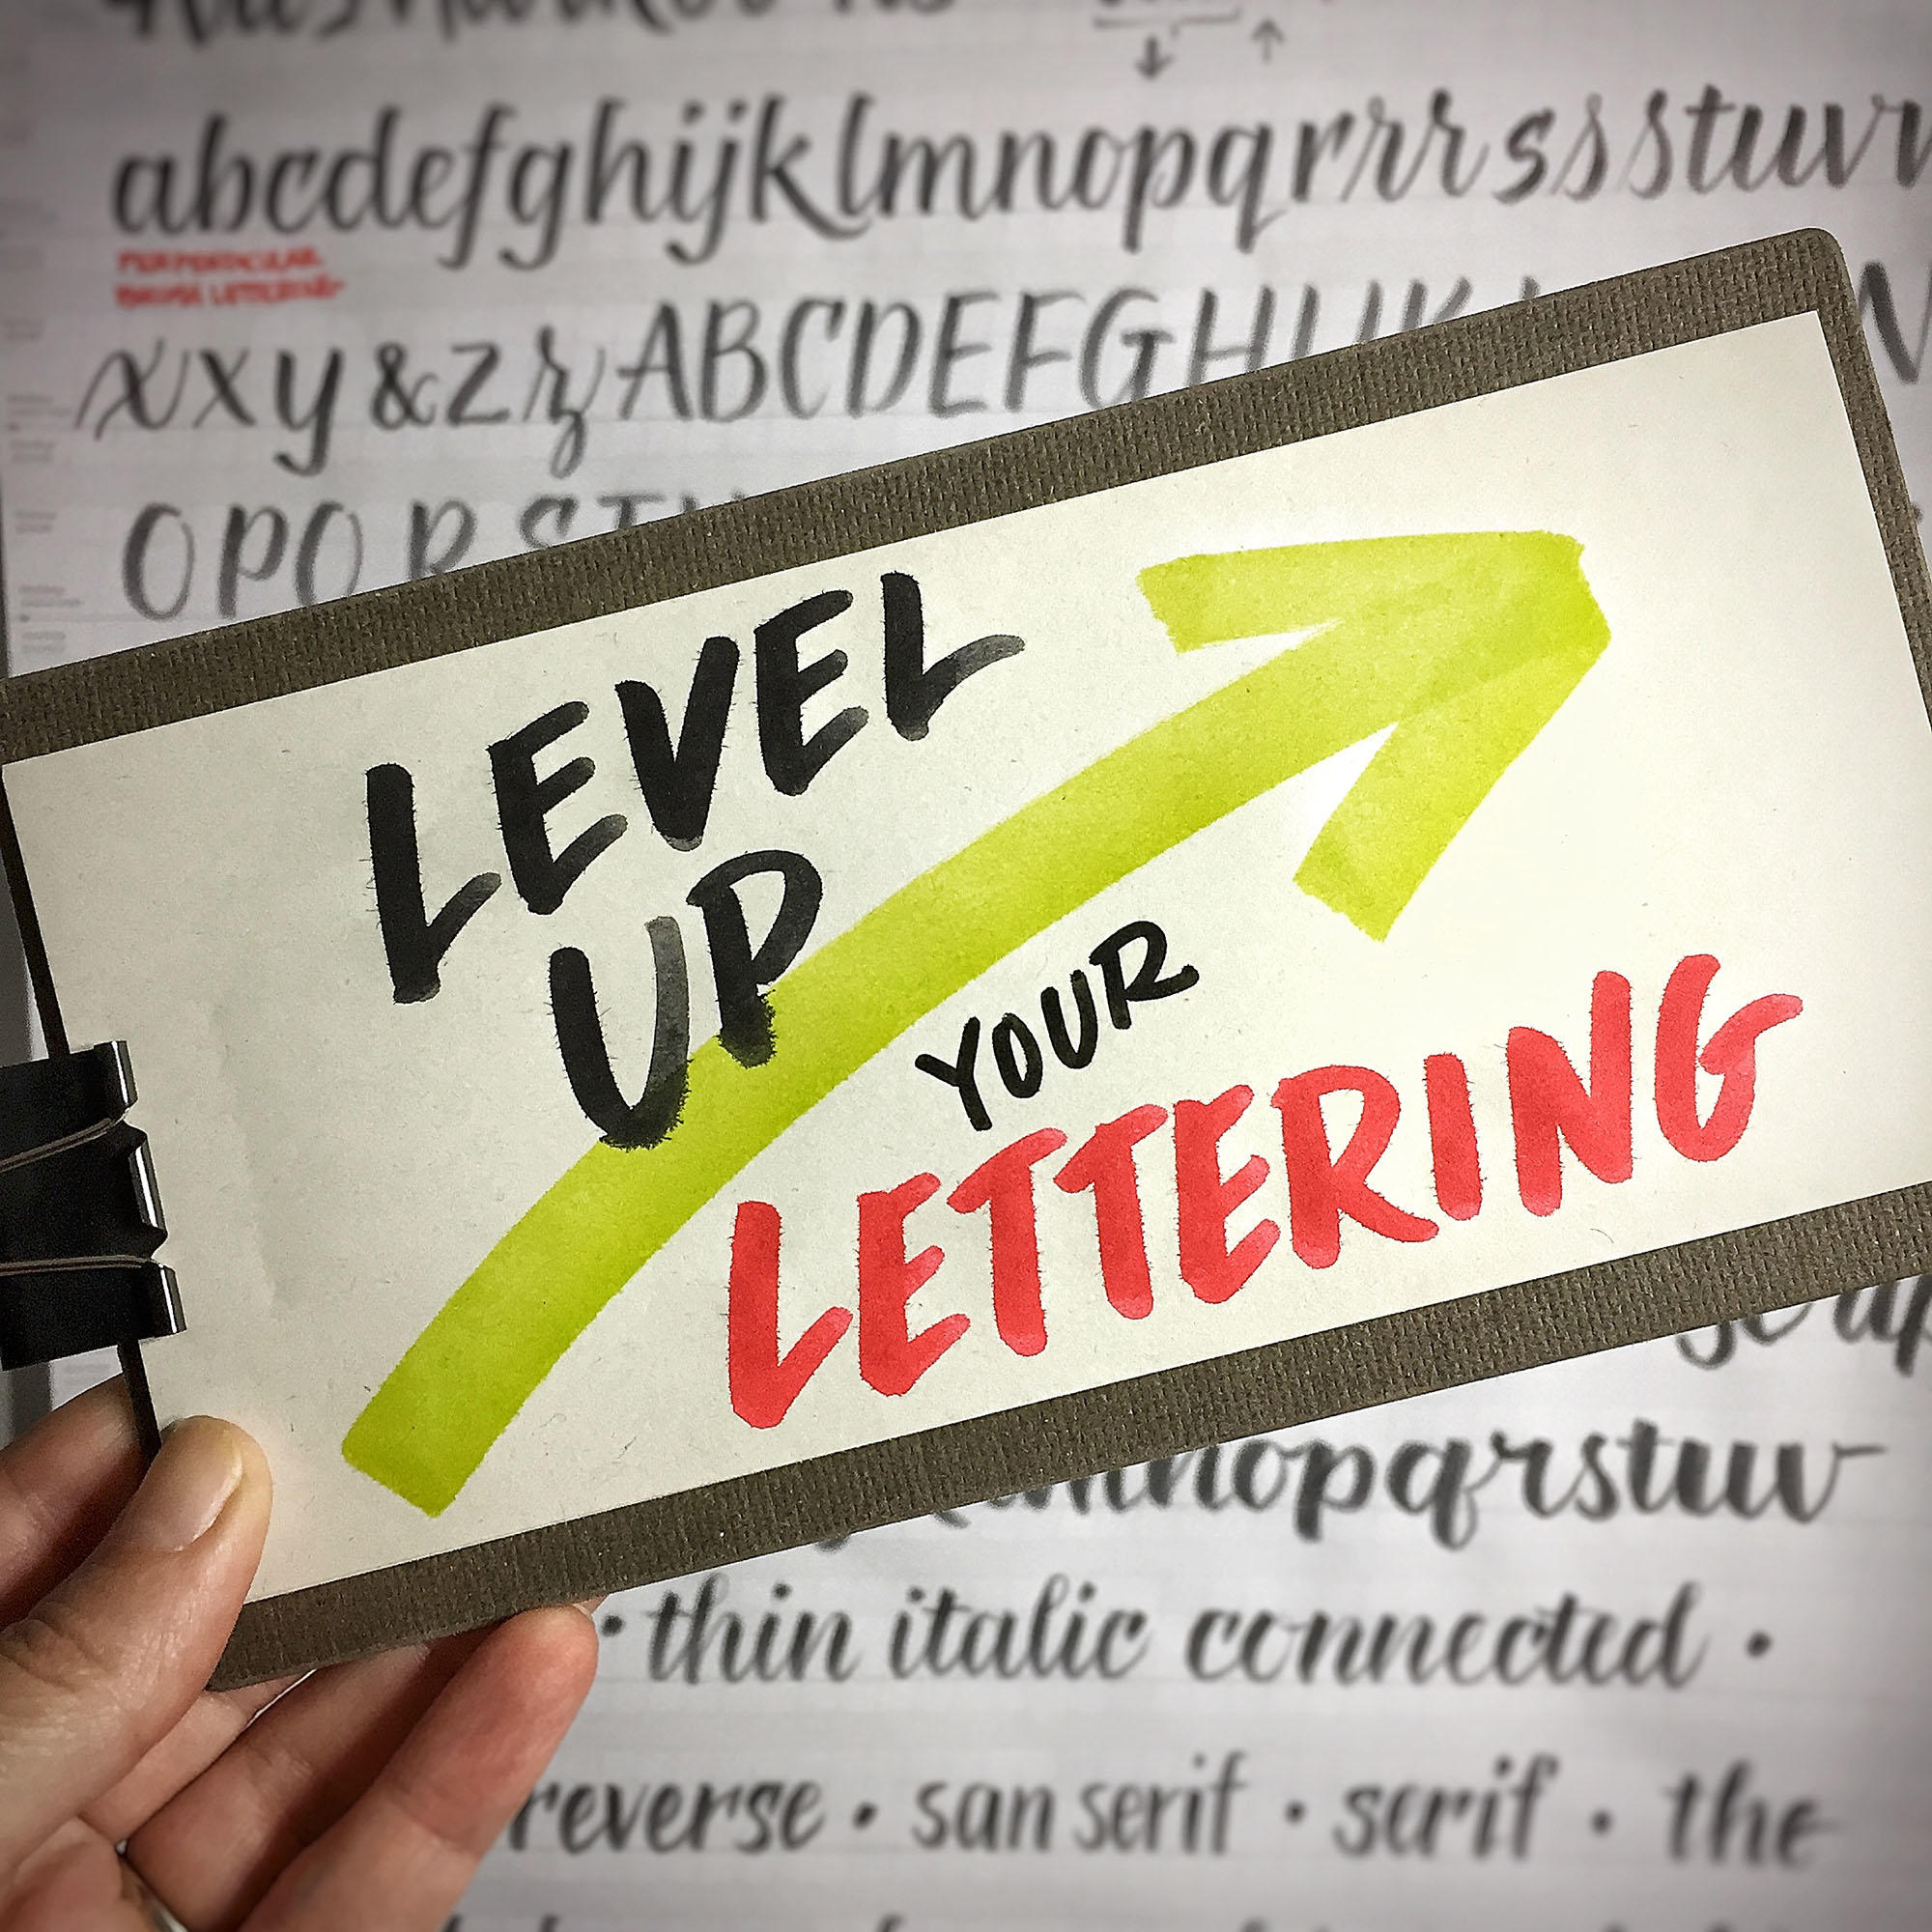 abcdefghijklmnopqrrrsssstuv
PERPENDICULAR
BRUSH LETTERING
xxy&zzABCDEFGHIJK
OPQRST
LEVEL
UP
YOUR
LETTERING
mnopqrstuv
• thin italic connected •
reverse • san serif • serif • the